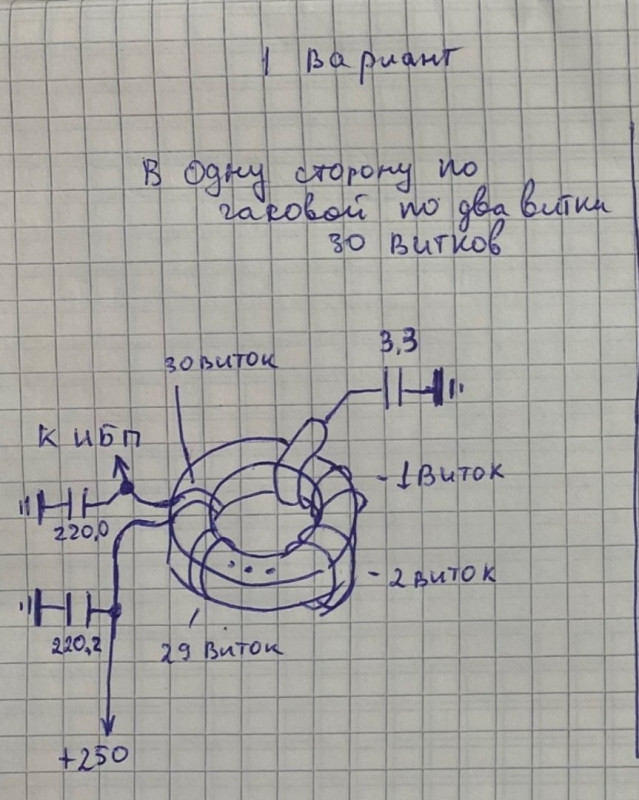 1 Вариант
В одну сторону по
гаковой по два витка
30 витков
3,3
30 виток
К ИБП
- 1 виток
220,0
- 2 виток
220,2
29 виток
+250